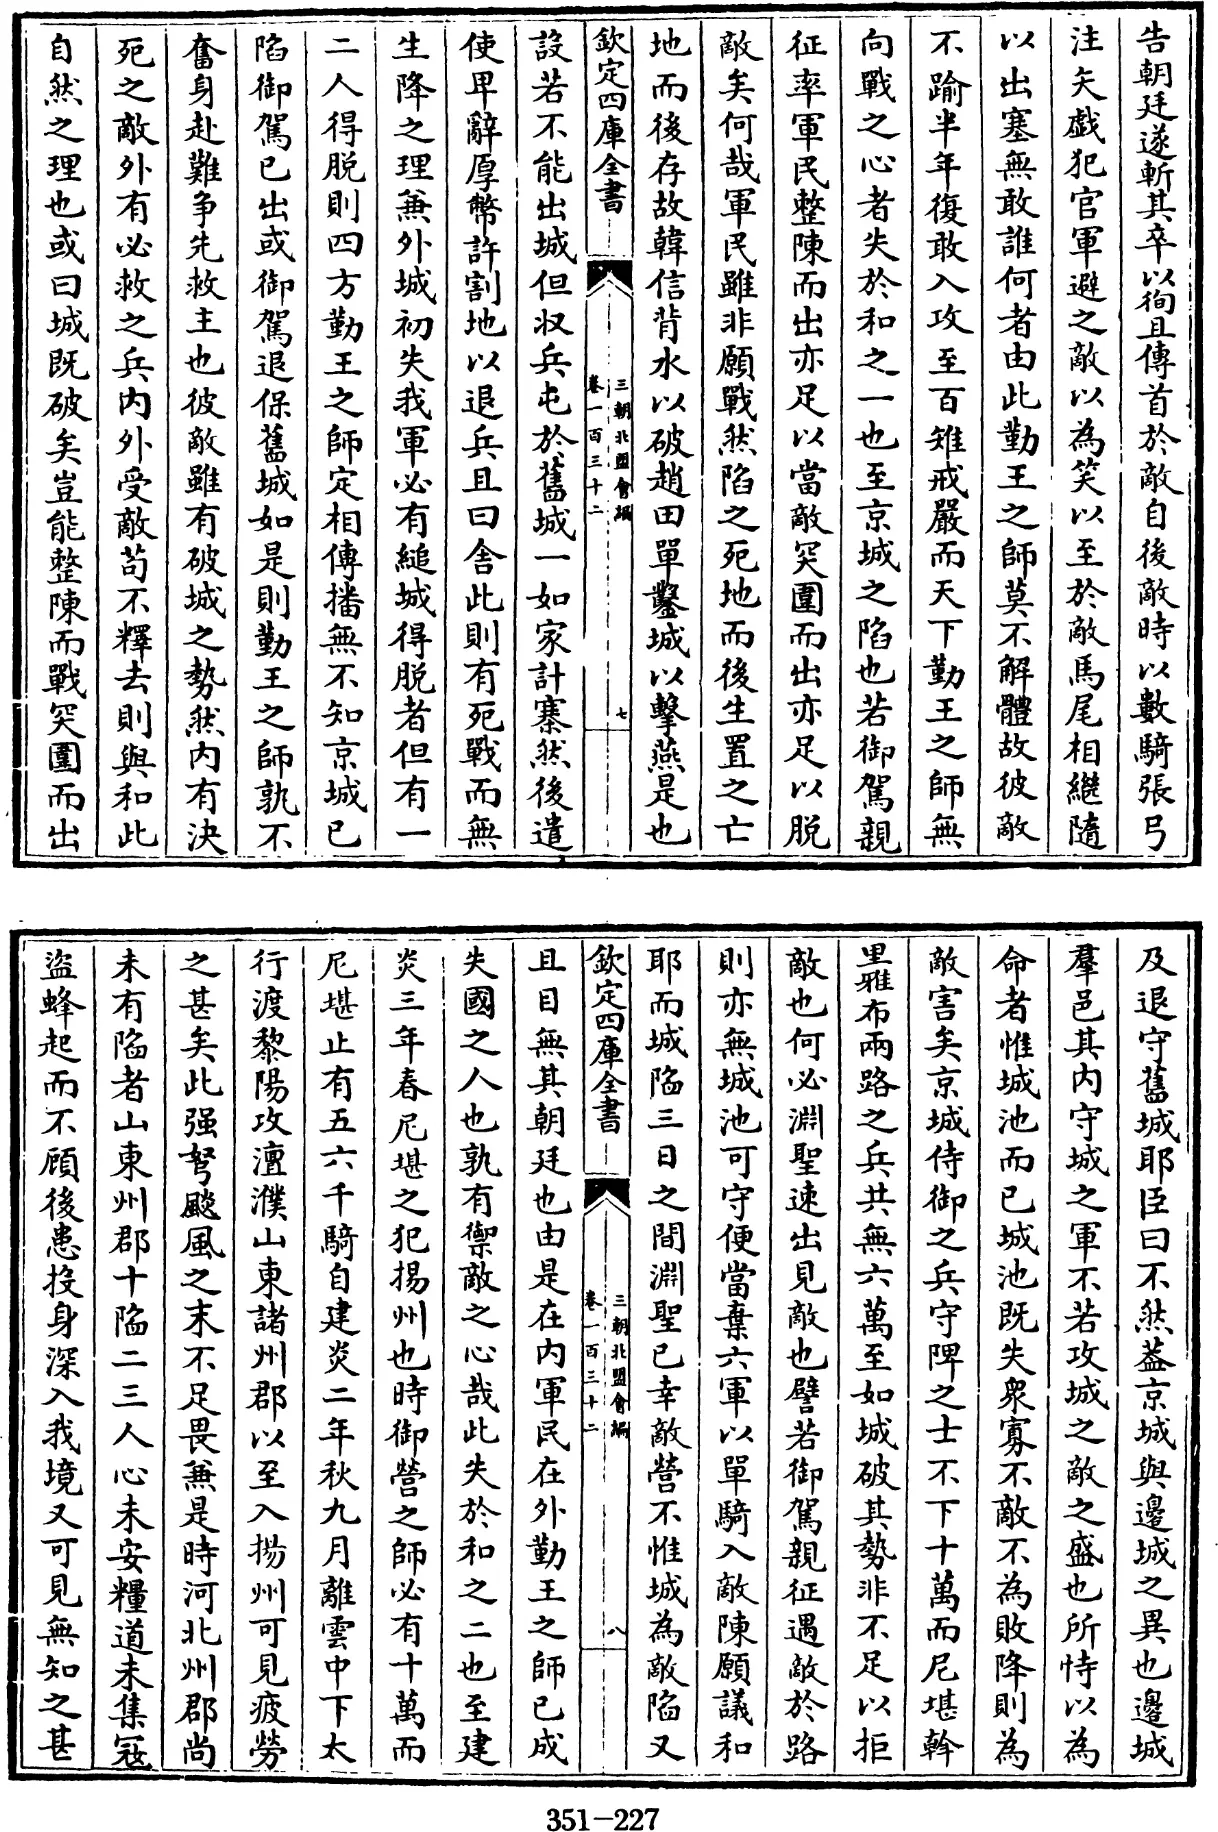 告朝廷遂斬其卒以徇且傳首於敵自後敵時以數騎張弓
注矢戯犯官軍避之敵以為笑以至於敵馬尾相繼隨
以出塞無敢誰何者由此勤王之師莫不解體故彼敵
不踰半年復敢入攻至百雉戒嚴而天下勤王之師無
向戰之心者失於和之一也至京城之陷也若御駕親
征率軍民整陳而出亦足以當敵突圍而出亦足以脱
敵矣何哉軍民雖非願戰然陷之死地而後生置之亡
地而後存故韓信背水以破趙田單鑿城以擊燕是也
欽定四庫全書
三朝北盟會編
卷一百三十二
七
設若不能出城但収兵屯於舊城一如家計寨然後遣
使卑辭厚幣許割地以退兵且曰舍此則有死戰而無
生降之理兼外城初失我軍必有縋城得脱者但有一
二人得脱則四方勤王之師定相傳播無不知京城已
陷御駕已出或御駕退保舊城如是則勤王之師孰不
奮身赴難争先救主也彼敵雖有破城之勢然内有決
死之敵外有必救之兵内外受敵苟不釋去則與和此
自然之理也或曰城既破矣豈能整陳而戰突圍而出
及退守舊城耶臣曰不然葢京城與邊城之異也邊城
羣邑其内守城之軍不若攻城之敵之盛也所恃以為
命者惟城池而已城池既失衆寡不敵不為敗降則為
敵害矣京城侍御之兵守陴之士不下十萬而尼堪斡
里雅布兩路之兵共無六萬至如城破其勢非不足以拒
敵也何必淵聖速出見敵也譬若御駕親征遇敵於路
則亦無城池可守便當棄六軍以單騎入敵陳願議和
耶而城陷三日之間淵聖已幸敵營不惟城為敵陷又
欽定四庫全書
三朝北盟會編
卷一百三十二
八
且目無其朝廷也由是在内軍民在外勤王之師已成
失國之人也孰有禦敵之心哉此失於和之二也至建
炎三年春尼堪之犯揚州也時御營之師必有十萬而
尼堪止有五六千騎自建炎二年秋九月離雲中下太
行渡黎陽攻澶濮山東諸州郡以至入揚州可見疲勞
之甚矣此强弩颷風之末不足畏兼是時河北州郡尚
未有陷者山東州郡十陷二三人心未安糧道未集寇
盜蜂起而不顧後患投身深入我境又可見無知之甚
351-227